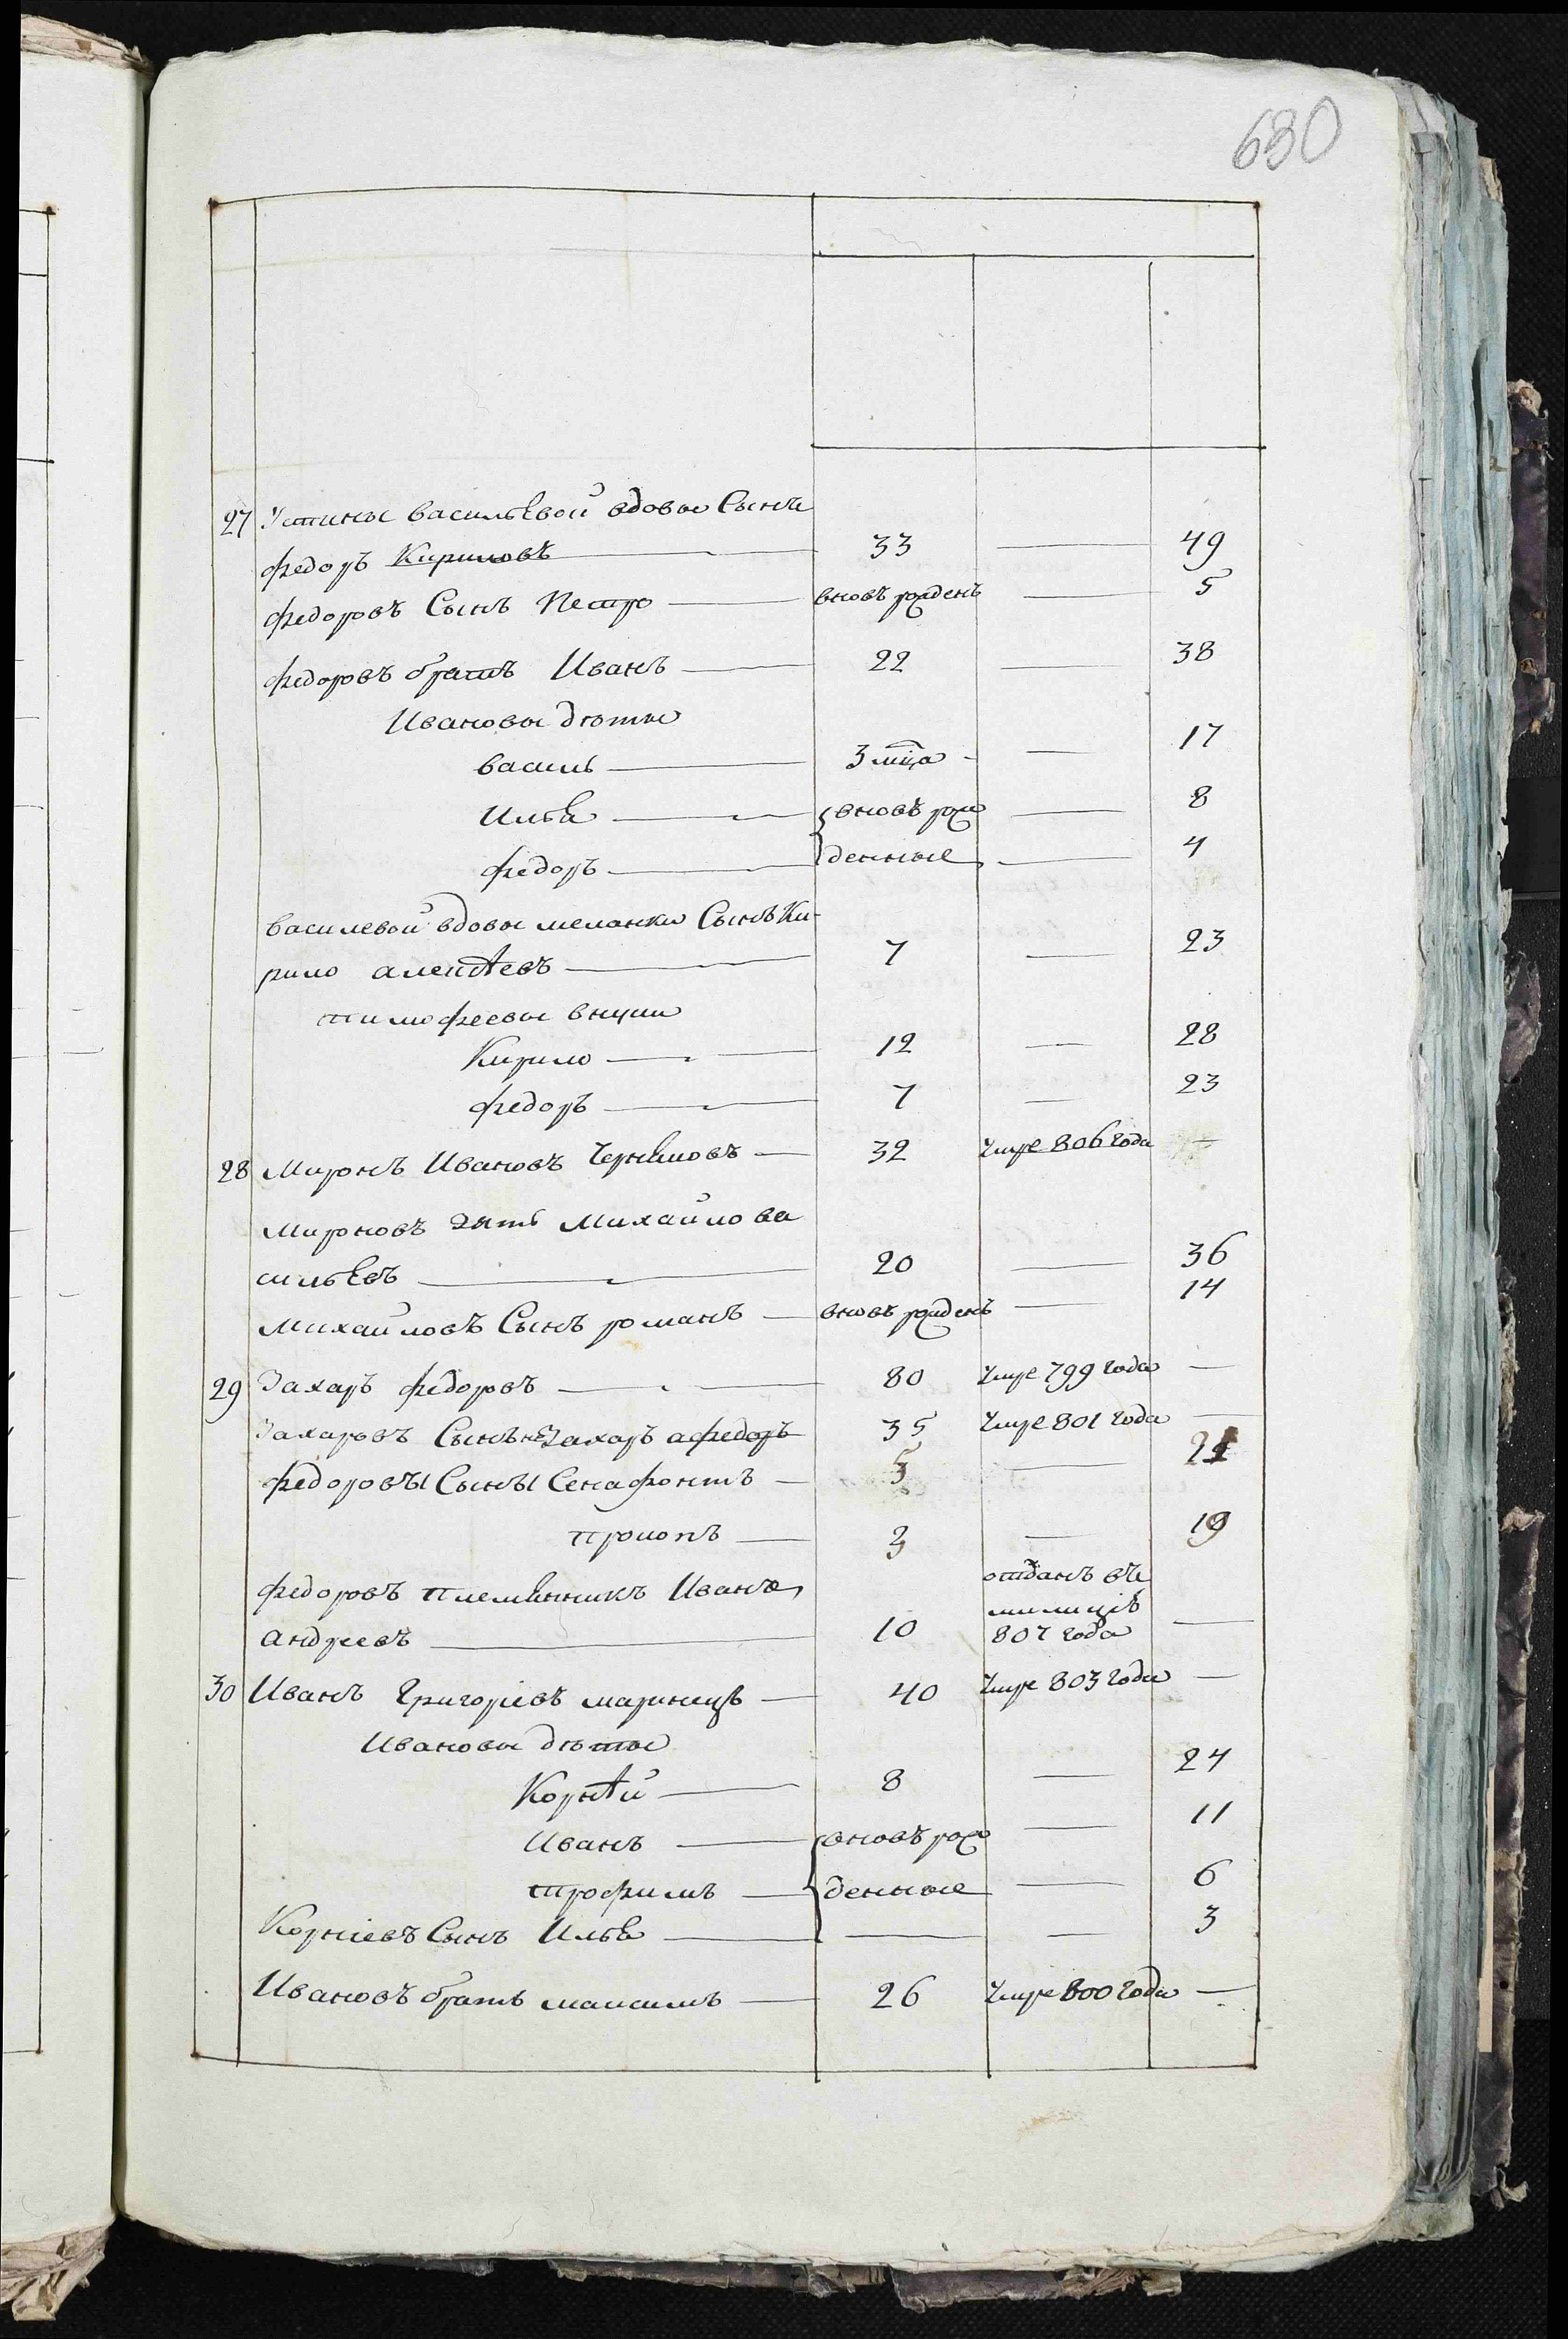 680
27 Устины васильевой вдовы Сынъ
федоръ Кириловъ — 33 — 49
федоровъ Сынъ Петро — вновь рожденъ — 5
федоровъ братъ Иванъ — 22 — 38
Ивановы дѣты
василь — 3 мца — 17
Илья — вновь рож — 8
федоръ — денные — 4
василевой вдовы меланки Сынъ Ки-
рило алексѣевъ — 7 — 23
тимофеевы внуки
Кирило — 12 — 28
федоръ — 7 — 23
28 Миронъ Ивановъ Черняковъ — 32 Умре 806 года —
Мироновъ зять Михайло ва
сильевъ — 20 — 36
михайловъ Сынъ романъ — вновь рожденъ — 14
29 Захаръ федоровъ — 80 Умре 799 года —
Захаровъ Сынъ не Захаръ а федоръ 35 Умре 801 года —
федоровы Сыны Сенафонтъ — 5 — 21
прокопъ — 3 — 19
федоровъ племянникъ Иванъ отданъ въ
милицію
андреевъ — 10 807 года —
30 Иванъ Григоріевъ маринецъ — 40 Умре 803 года —
Ивановы дѣты
Корнѣй — 8 — 24
Иванъ — вновь рож — 11
трофимъ — денные — 6
Корніевъ Сынъ Илья — — — 3
Ивановъ братъ максимъ — 26 Умре 800 года —